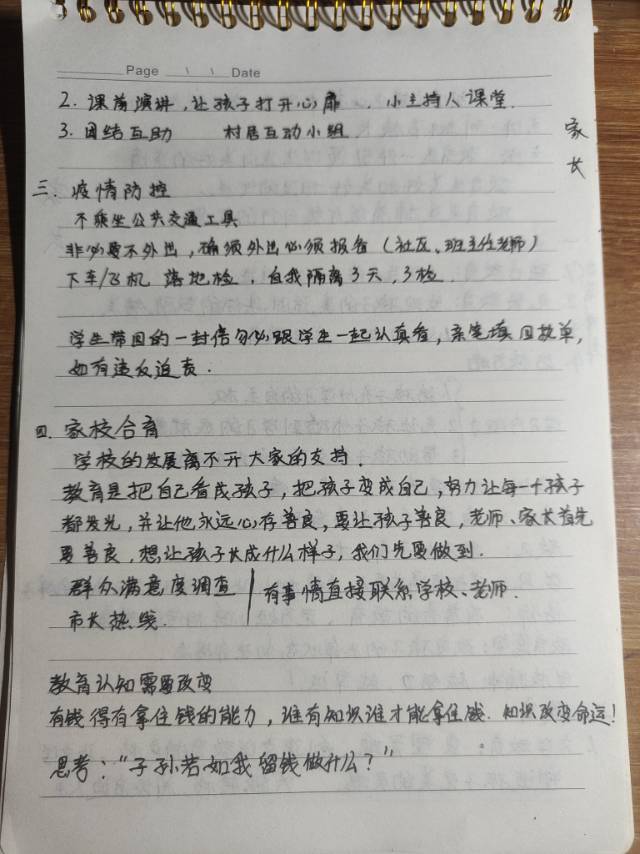 Page \ \ Date
2. 课前演讲，让孩子打开心扉 . 小主持人课堂.
3. 团结互助 村居互动小组
家长
三. 疫情防控
不乘坐公共交通工具
非必要不外出，确须外出必须报备（社区、班主任老师）
下车/飞机 落地检，自我隔离3天，3检.
学生带回的一封信勿必跟学生一起认真看，亲笔填回执单，
如有违反追责.
四. 家校合育
学校的发展离不开大家的支持.
教育是把自己看成孩子，把孩子变成自己，努力让每一个孩子
都发光，并让他永远心存善良，要让孩子善良，老师、家长首先
要善良，想让孩子长成什么样子，我们先要做到.
群众满意度调查 | 有事情直接联系学校、老师.
市长热线.
教育认知需要改变
有钱得有拿住钱的能力，谁有知识谁才能拿住钱. 知识改变命运！
思考：“子孙若如我留钱做什么？”